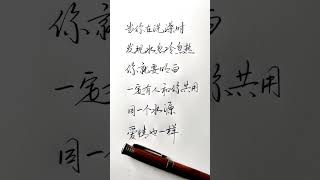 当你在洗澡时
发现水忽冷忽热
你就要明白
一定有人和你共用
同一个水源
爱情也一样